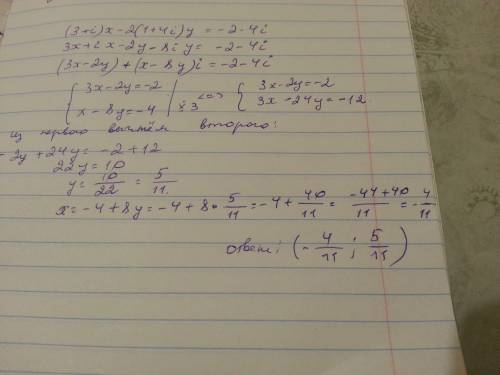 (3+i)x-2(1+4i)y = -2-4i
3x+ix-2y-8iy = -2-4i
(3x-2y)+(x-8y)i = -2-4i
{ 3x-2y=-2 | <=> { 3x-2y=-2
x-8y=-4 | x3 3x-24y=-12
из первого вычтём второго:
-2y+24y = -2+12
22y=10
y= 10/22 = 5/11
x=-4+8y=-4+8·5/11=-4+40/11= -44+40/11 =-4/11
ответ: (-4/11; 5/11)